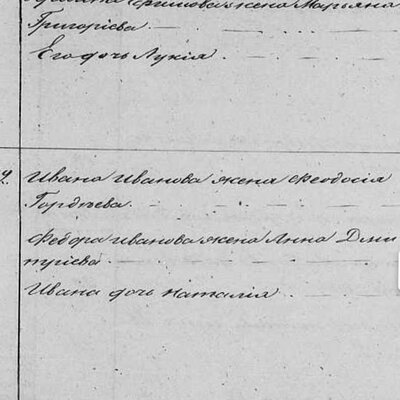 Ермолова жена Марьяна
Григоріева
Его дочь Лукія
Ивана Иванова жена Феодосія
Гордѣева
Федора Иванова жена Анна Дми
тріева
Ивана дочь Наталія